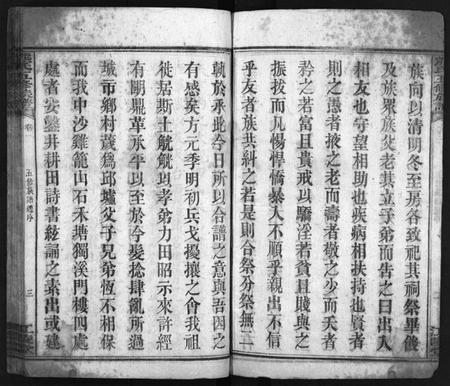 族向以清明冬至房各致祀其祠祭畢復
及族眾族父老其立子弟而告之曰出入
相友也守望相助也疾病相扶持也賢者
則之愚者掖之老而壽者敬之少而夭者
矜之若富且貴戒以驕淫若貧且賤與之
振拔而凡惕悍憍暴入不順乎親出不信
乎友者族共糾之若是則合祭分祭無二
執於承此今日所以合譜之意與吾因之
有感矣方元季明初兵戈擾攘之會我祖
徙居斯土兢兢以孝弟力田昭示來許經
有關鼎革承平以至於今髮捻肆亂所過
城市鄉村蕩為邱墟父子兄弟恆不相保
而我申沙雞籠山石禾塘獨溪門樓四處
處者安鑿井耕田詩書絃誦之素出或建
卷
三